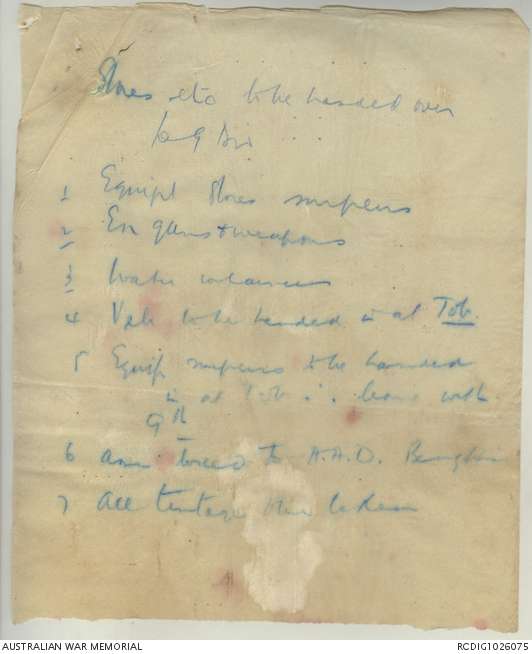 Stores etc to be handed over
to 9 Div
1 Equipt Stores surplus
2 En guns & weapons
3 Water containers
4 Veh to be handed in at Tob.
5 Equip surplus to be handed
in at Tob ∴ leave with
9th
6 Amn to A.A.D. Benghazi
7 All tentage
AUSTRALIAN WAR MEMORIAL
RCDIG1026075